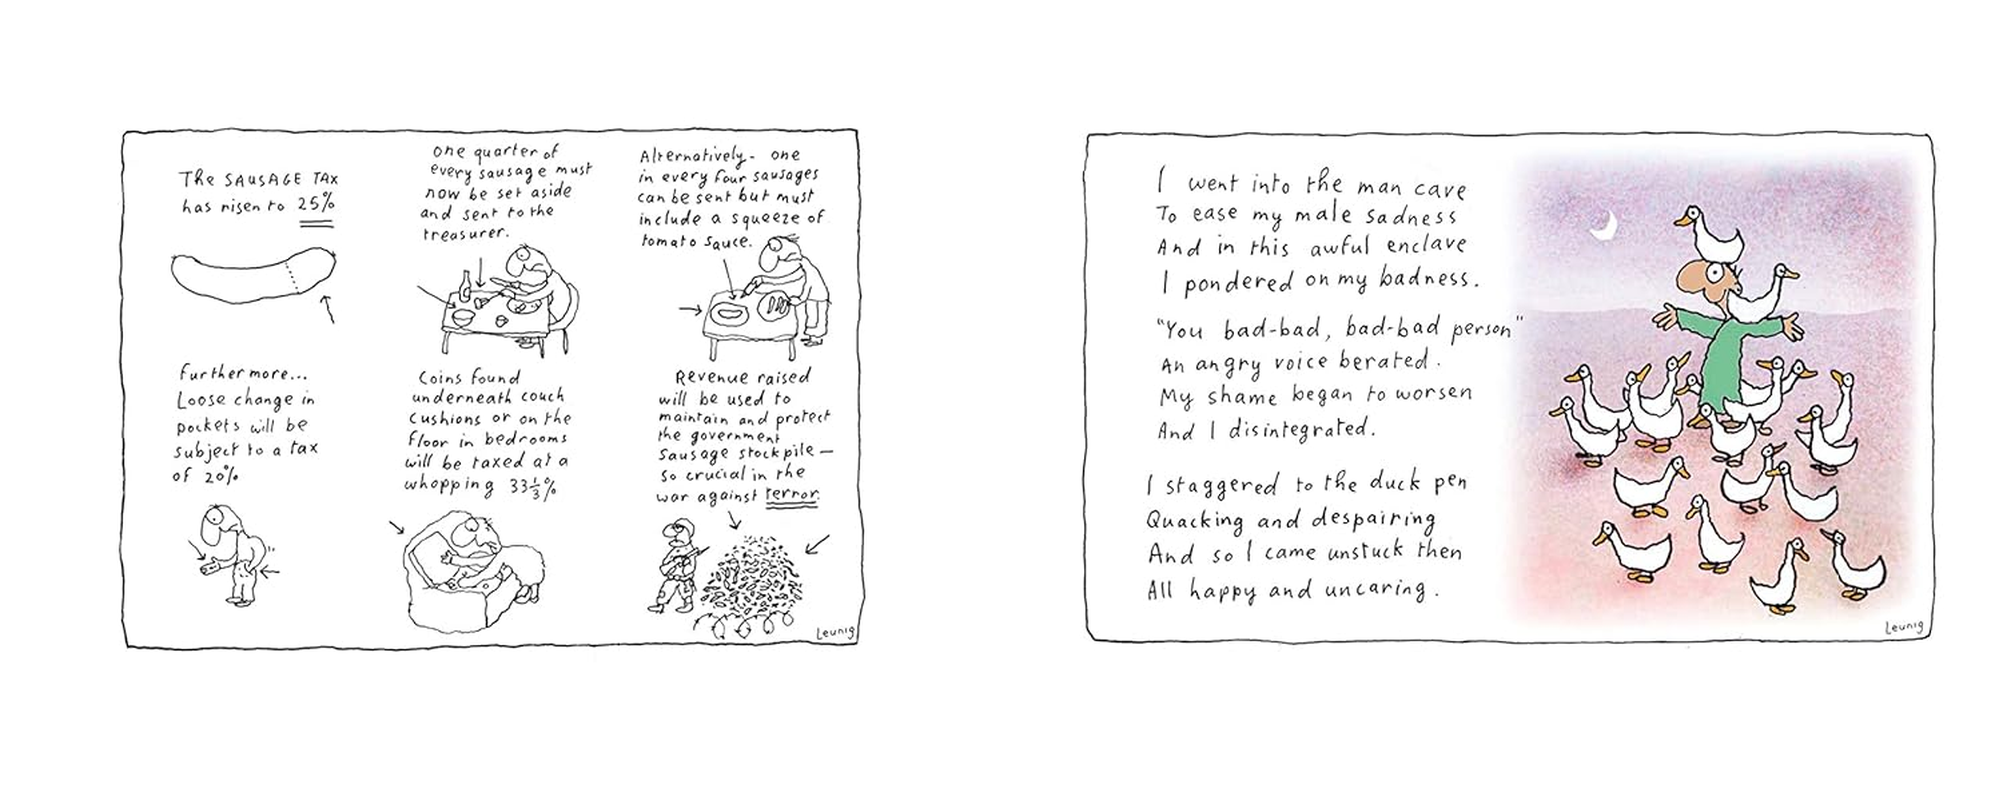 The SAUSAGE TAX
has risen to 25%
one quarter of
every sausage must
now be set aside
and sent to the
treasurer.
Alternatively - one
in every four sausages
can be sent but must
include a squeeze of
tomato sauce.
Furthermore...
Loose change in
pockets will be
subject to a tax
of 20%
Coins found
underneath couch
cushions or on the
floor in bedrooms
will be taxed at a
whopping 33⅓%
Revenue raised
will be used to
maintain and protect
the government
sausage stockpile —
so crucial in the
war against terror.
Leunig
I went into the man cave
To ease my male sadness
And in this awful enclave
I pondered on my badness.
"You bad-bad, bad-bad person"
An angry voice berated.
My shame began to worsen
And I disintegrated.
I staggered to the duck pen
Quacking and despairing
And so I came unstuck then
All happy and uncaring.
Leunig